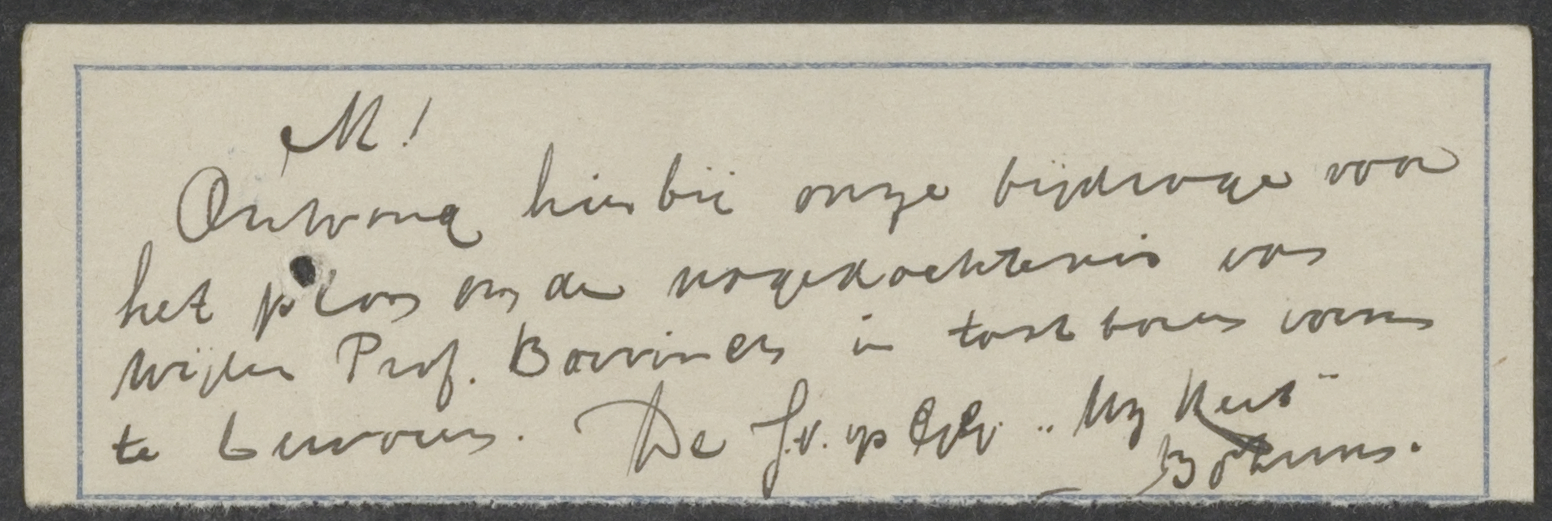 M!
Ontvang hierbij onze bijdrage voor
het plan om de nagedachtenis van
wijlen Prof. Bavinck in tastbaren vorm
te bewaren. De J.V. op